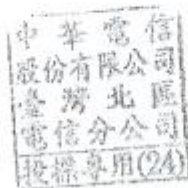 中華電信
股份有限公司
臺灣北區
電信分公司
投標專用(24)